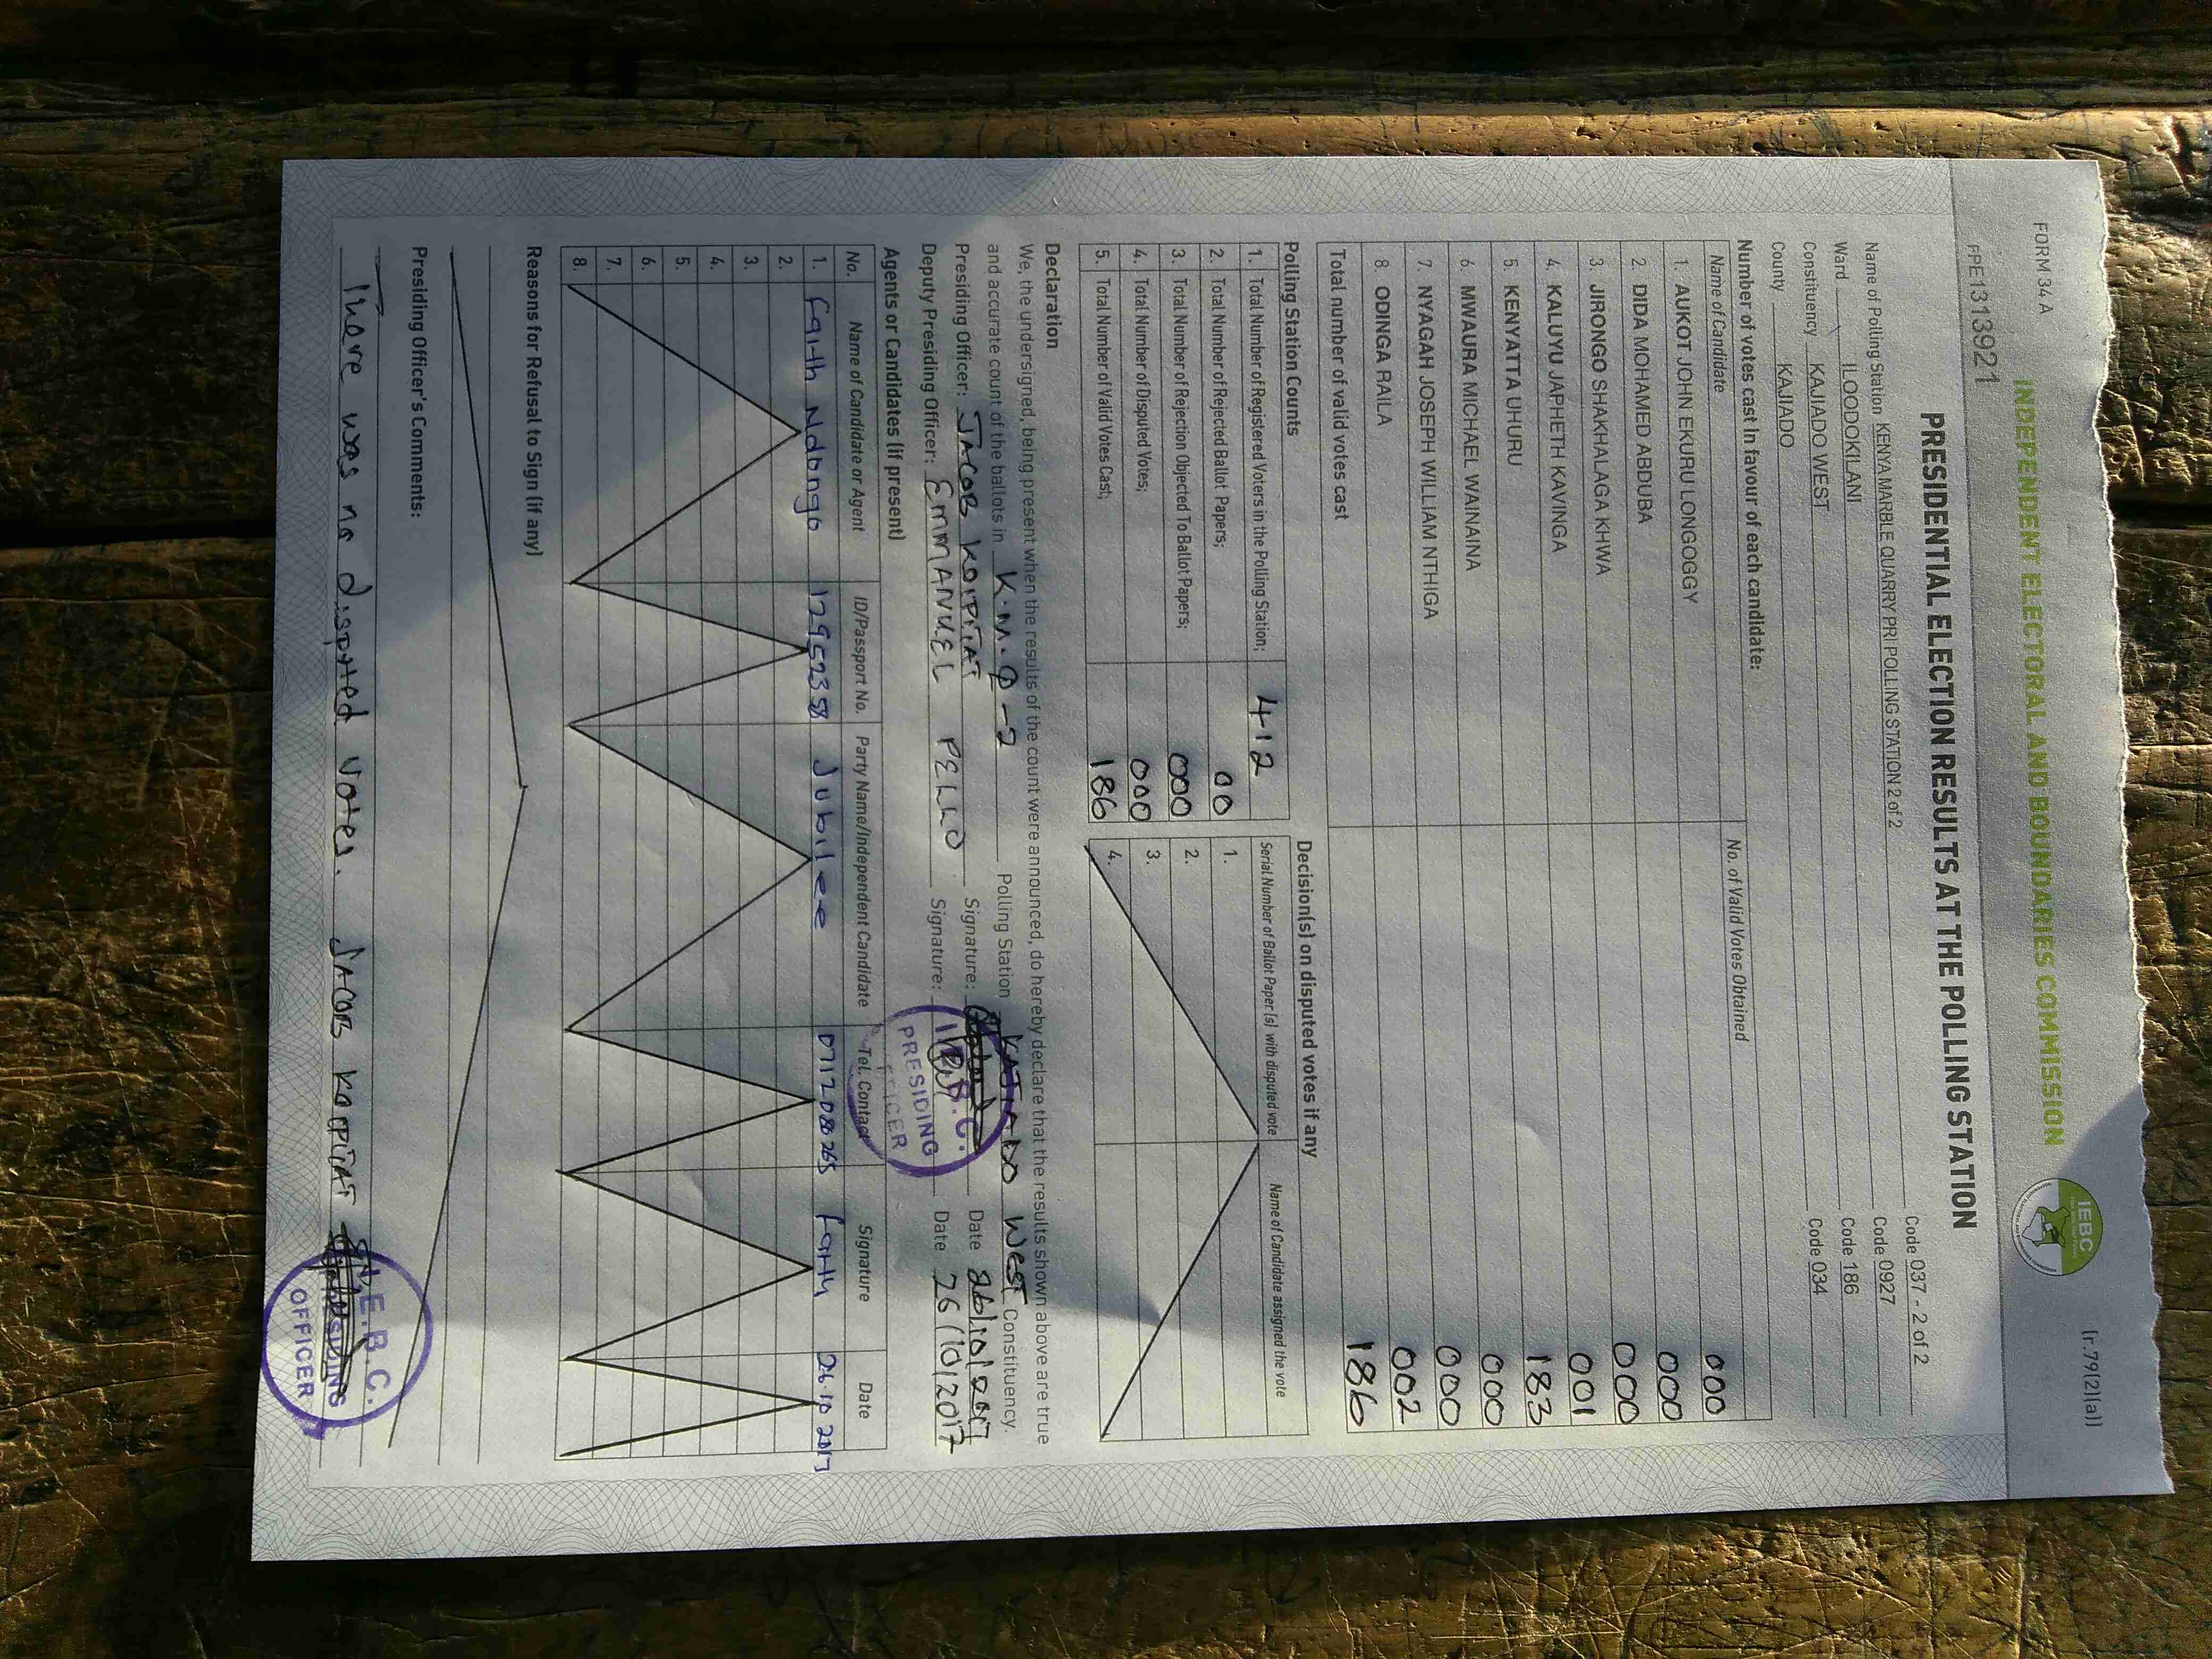 FORM 34 A
(r.79(2)(a))
INDEPENDENT ELECTORAL AND BOUNDARIES COMMISSION
IEBC
PPE1313921
PRESIDENTIAL ELECTION RESULTS AT THE POLLING STATION
Name of Polling Station KENYA MARBLE QUARRY PRI POLLING STATION 2 of 2 Code 037 - 2 of 2
Ward ILOODOKILANI Code 0927
Constituency KAJIADO WEST Code 186
County KAJIADO Code 034
Number of votes cast in favour of each candidate:
Name of Candidate No. of Valid Votes Obtained
1. AUKOT JOHN EKURU LONGOGGY 000
2. DIDA MOHAMED ABDUBA 000
3. JIRONGO SHAKHALAGA KHWA 000
4. KALUYU JAPHETH KAVINGA 001
5. KENYATTA UHURU 183
6. MWAURA MICHAEL WAINAINA 000
7. NYAGAH JOSEPH WILLIAM NTHIGA 000
8. ODINGA RAILA 002
Total number of valid votes cast 186
Polling Station Counts
1. Total Number of Registered Voters in the Polling Station; 412
2. Total Number of Rejected Ballot Papers; 00
3. Total Number of Rejection Objected To Ballot Papers; 000
4. Total Number of Disputed Votes; 000
5. Total Number of Valid Votes Cast; 186
Decision(s) on disputed votes if any
Serial Number of Ballot Paper (s) with disputed vote Name of Candidate assigned the vote
1.
2.
3.
4.
Declaration
We, the undersigned, being present when the results of the count were announced, do hereby declare that the results shown above are true
and accurate count of the ballots in K.M.Q-2 Polling Station KAJIADO WEST Constituency.
Presiding Officer: JACOB KOIPITAT Signature: Date 26/10/2017
Deputy Presiding Officer: EMMANUEL PELLO Signature: Date 26/10/2017
I.E.B.C.
PRESIDING
OFFICER
Agents or Candidates (if present)
No. Name of Candidate or Agent ID/Passport No. Party Name/Independent Candidate Tel. Contact Signature Date
1. Faith Ndongo 12952358 Jubilee 0712080265 Faith 26.10 2017
2.
3.
4.
5.
6.
7.
8.
Reasons for Refusal to Sign (if any)
Presiding Officer's Comments:
There was no disputed votes. JACOB KOIPITAT
I.E.B.C.
PRESIDING
OFFICER